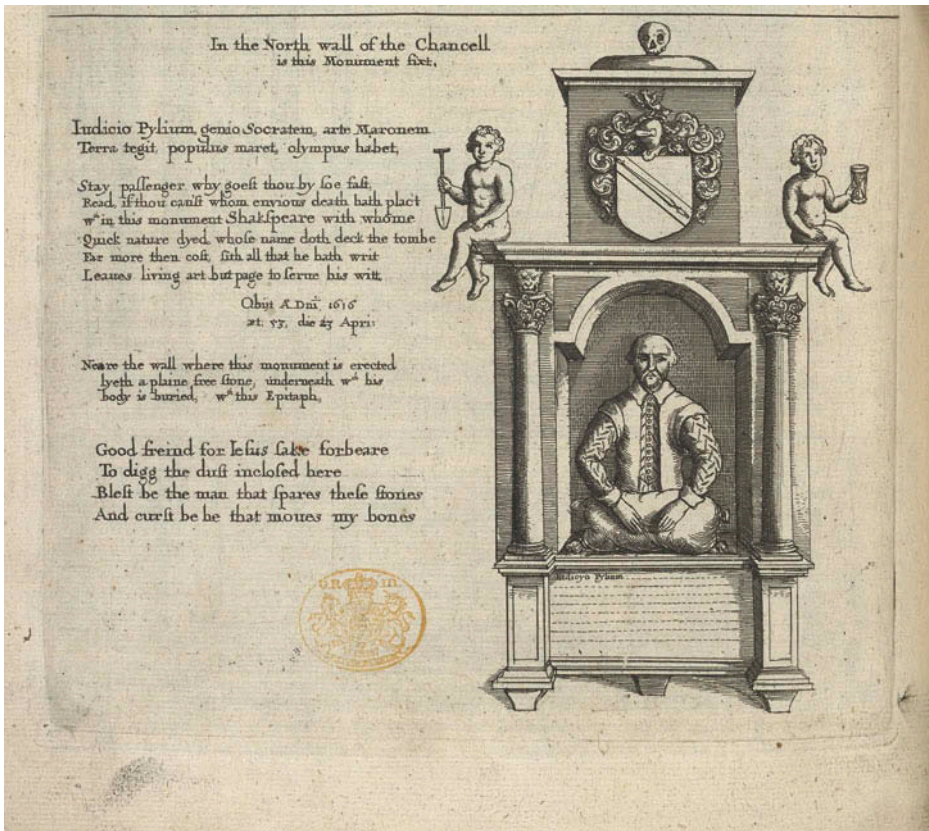 In the North wall of the Chancell
is this Monument fixt.
Iudicio Pylium, genio Socratem, arte Maronem
Terra tegit, populus mæret, olympus habet,
Stay passenger why goest thou by soe fast,
Read, if thou canst whom envious death hath plac't
wth in this monument Shakspeare with whome
Quick nature dyed, whose name doth deck the tombe
Far more then cost, sith all that he hath writ
Leaues living art but page to serue his witt
Obijt A Dni 1616
æt. 53, die 23 Apri:
Neare the wall where this monument is erected
lyeth a plaine free stone, underneath wch his
body is buried, wth this Epitaph,
Good freind for Iesus sake forbeare
To digg the dust inclosed here
Blest be the man that spares these stones
And curst be he that moues my bones
Iudicyo Pylium